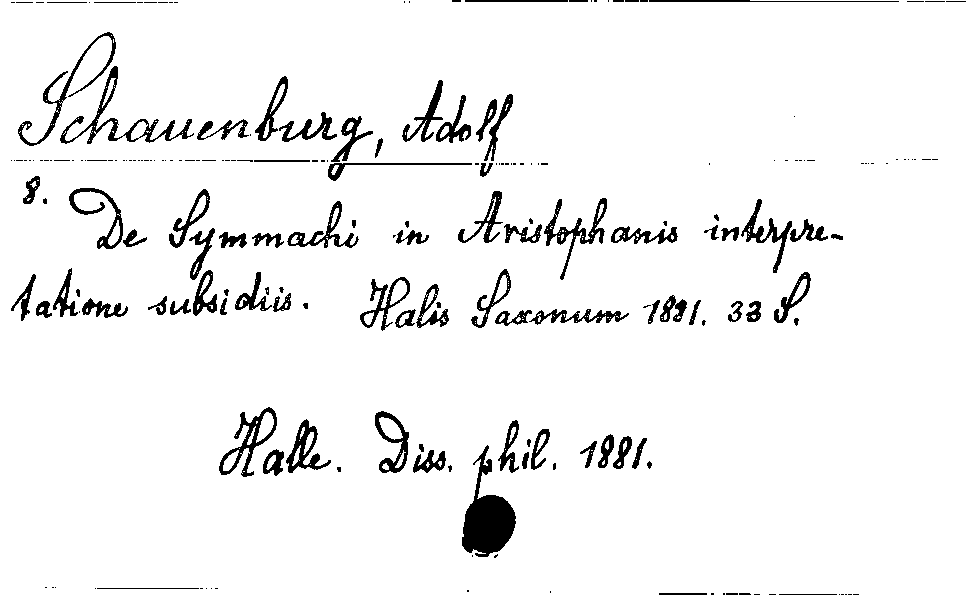 Schauenburg, Adolf
8.
De Symmachi in Aristophanis interpre-
tatione subsidiis. Halis Saxonum 1881. 33 S.
Halle. Diss. phil. 1881.